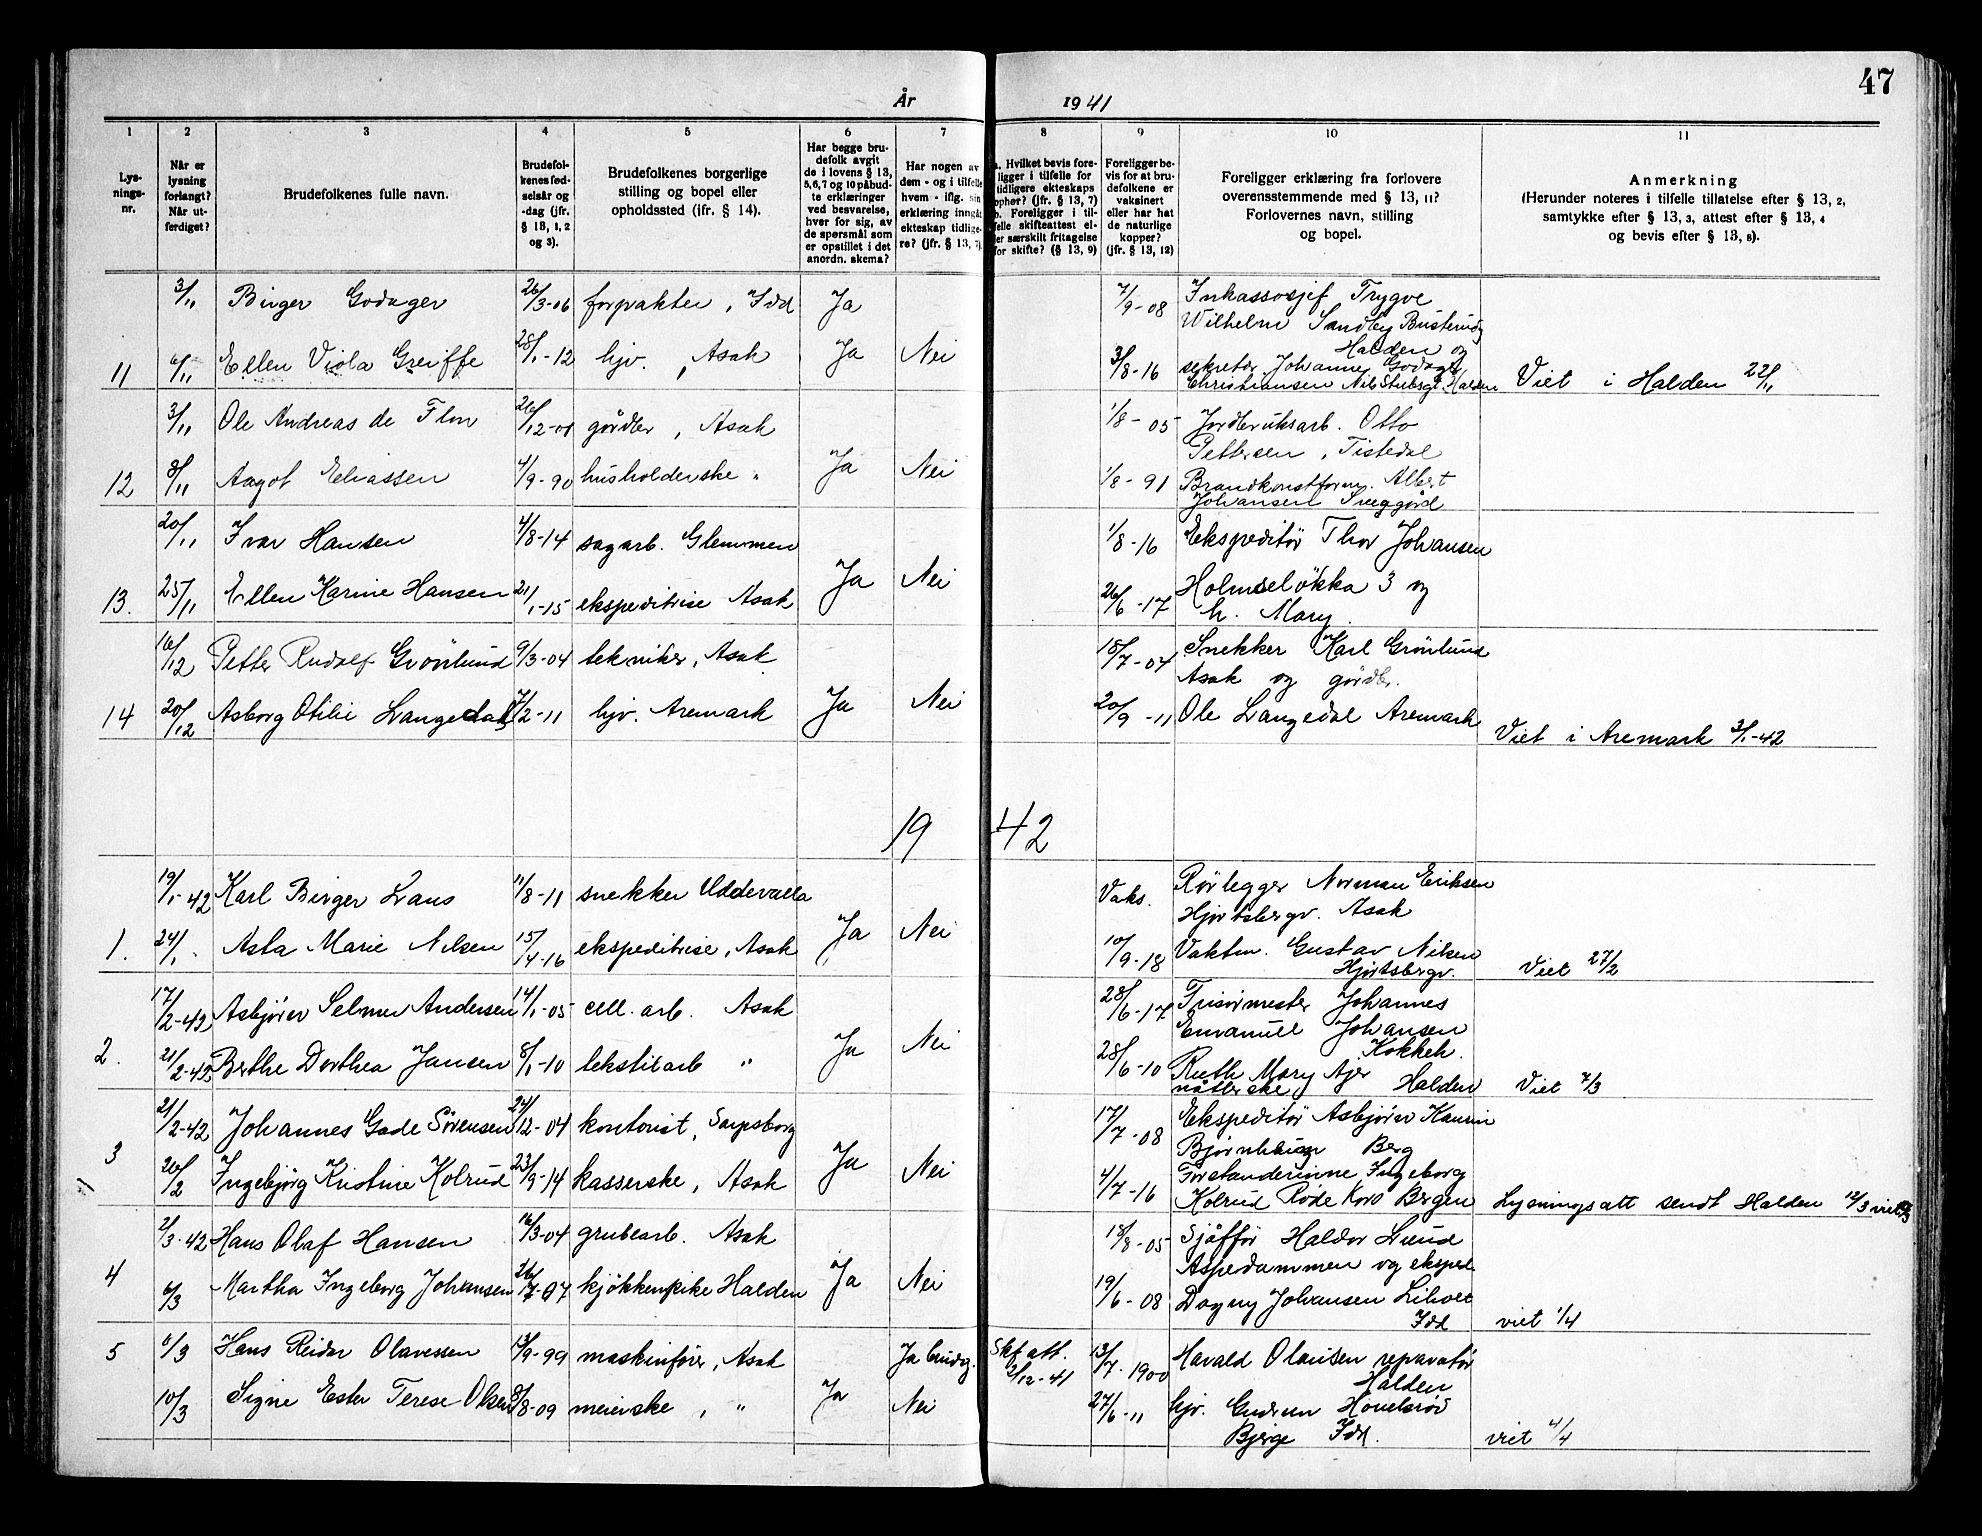 47
År 1941
1 2 3 4 5 6 7 8 9 10 11
Lysnings-nr.
Når er lysning forlangt? Når utferdiget?
Brudefolkenes fulle navn.
Brudefolkenes fødselsår og -dag (jfr. § 13, 1, 2 og 3).
Brudefolkenes borgerlige stilling og bopel eller opholdssted (jfr. § 14).
Har begge brudefolk avgit de i lovens § 13, 5, 6, 7 og 10 påbudte erklæringer ved besvarelse, hver for sig, av de spørsmål som er opstillet i det anordn. skema?
Har nogen av dem - og i tilfelle hvem - iflg. sin erklæring inngåt ekteskap tidligere? (jfr. § 13, 7).
a. Hvilket bevis foreligger i tilfelle for tidligere ekteskaps ophør? (jfr. § 13, 7) b. Foreligger i tilfelle skifteattest eller særskilt fritagelse for skifte? (§ 13, 9)
Foreligger bevis for at brudefolkene er vaksinert eller har hat de naturlige kopper? (jfr. § 13, 12)
Foreligger erklæring fra forlovere overensstemmende med § 13, 11? Forlovernes navn, stilling og bopel.
Anmerkning (Herunder noteres i tilfelle tillatelse efter § 13, 2, samtykke efter § 13, 3, attest efter § 13, 4 og bevis efter § 13, 8).
3/11 Birger Godager 26/3-06 forpakter, Idd Ja 7/9-08 Inkassosjef Trygve
Wilhelm Sandby Busterudg
Halden og
11 6/11 Ellen Viola Greiffe 28/1-12 hjv., Asak Ja Nei 3/8-16 sekretær Johannes Godager
Christiansen Nils Stubsgt. Halden Viet i Halden 22/11
3/11 Ole Andreas de Flon 26/12-01 gårdbr, Asak 1/8-05 Jordbruksarb. Otto
Pettersen, Tistedal
12 8/11 Aagot Eliassen 4/9-90 husholderske " Ja Nei 1/8-91 Brandkonstform. Albert
Johansen Sveggård
20/11 Ivar Hansen 4/8-14 sagarb. Glemmen 1/8-16 Ekspeditør Thor Johansen
13. 25/11 Ellen Karine Hansen 21/1-15 ekspeditrise Asak Ja Nei 26/6-17 Holmseløkka 3 og
h. Mary.
16/12 Petter Rudolf Grönlund 9/3-04 tekniker, Asak 18/7-04 Snekker Karl Grönlund
Asak og gårdbr.
14 20/12 Asborg Otilie Langedal 7/2-11 hjv. Aremark Ja Nei 20/9-11 Ole Langedal Aremark
Viet i Aremark 3/1-42
1942
19/1-42 Karl Birger Lans 11/8-11 snekker Uddevalla Vaks. Rørlegger Norman Eriksen
Hjortsbergv. Asak
1. 24/1. Asta Marie Nilsen 15/4-16 ekspeditrise, Asak Ja Nei 10/9-18 Vaktm. Gustav Nilsen
Hjortsbergv. Viet 27/2
17/2-42 Asbjörn Selmer Andersen 14/1-05 cell. arb. Asak 28/6-17 Frisørmester Johannes
Emanuel Johansen
Kokkeh.
2. 21/2-42 Berthe Dorthea Jansen 8/1-10 tekstilarb " Ja Nei 28/6-10 Ruth Mary Ajer
nåtlerske Halden Viet 7/3
21/2-42 Johannes Gade Sörensen 24/12-04 kontorist, Sarpsborg 17/7-08 Ekspeditör Asbjörn
Björnhaug Berg
3 26/2 Ingebjörg Kristine Kolrud 23/9-14 kasserske, Asak Ja Nei 4/7-16 Forstanderinne Ingeborg
Kolrud Røde Kors Bergen Lysningsatt sendt Halden 12/3 viet
2/3-42 Hans Olaf Hansen 16/3-04 grubearb. Asak 18/8-05 Sjåffør Haldor Lund
Aspedammen og eksped.
4 6/3 Martha Ingeborg Johansen 26/7-07 kjøkkenpike Halden Ja Nei 19/6-08 Dagny Johansen Liholt
Idd viet 1/4
5 6/3 Hans Reidar Olavessen 13/9-99 maskinfører, Asak Ja brudg. Skf att. 2/12-41 13/7-1900 Harald Olausen reparatør
Halden
10/3 Signe Ester Terese Olsen 8/8-09 meierske, " Ja Nei 27/6-11 hjv. Gudrun
Bjerge Idd. viet 4/4